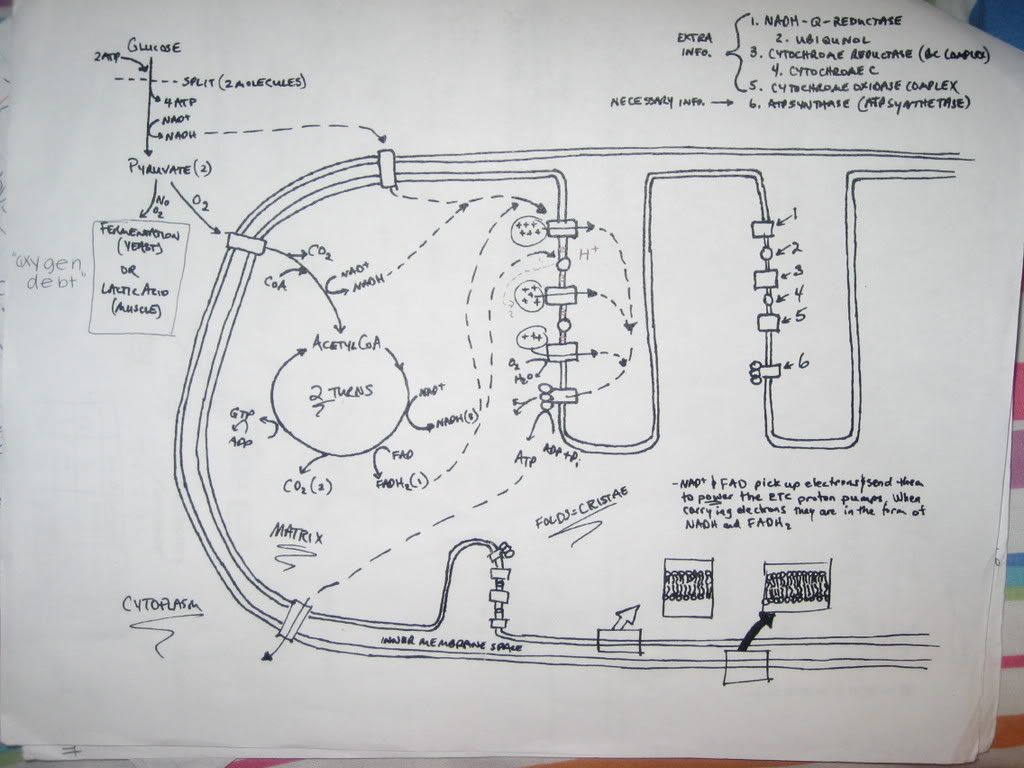 GLUCOSE
2ATP
SPLIT (2 MOLECULES)
4 ATP
NAD+
NADH
PYRUVATE (2)
NO O2
O2
FERMENTATION
(YEAST)
OR
LACTIC ACID
(MUSCLE)
"oxygen
debt"
EXTRA
INFO.
1. NADH-Q-REDUCTASE
2. UBIQUNOL
3. CYTOCHROME REDUCTASE (BC COMPLEX)
4. CYTOCHROME C
5. CYTOCHROME OXIDASE COMPLEX
NECESSARY INFO. → 6. ATP SYNTHASE (ATP SYNTHETASE)
CO2
CoA
NAD+
NADH
ACETYL CoA
2 TURNS
NAD+
NADH(3)
FAD
FADH2(1)
CO2(2)
GTP
ADP
+++
H+
++
+++
O2
H2O
ATP
ADP + Pi
1
2
3
4
5
6
- NAD+ & FAD pick up electrons & send them
to power the ETC proton pumps. When
carrying electrons they are in the form of
NADH and FADH2
FOLDS = CRISTAE
MATRIX
CYTOPLASM
INNER MEMBRANE SPACE